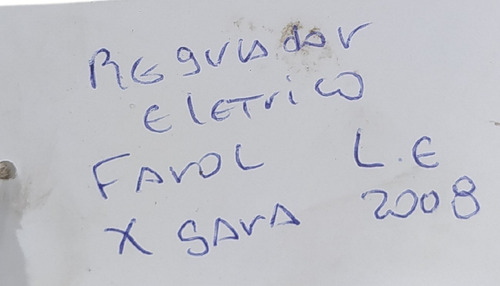 Regulador
eletrico
Farol L.E
Xsara 2008